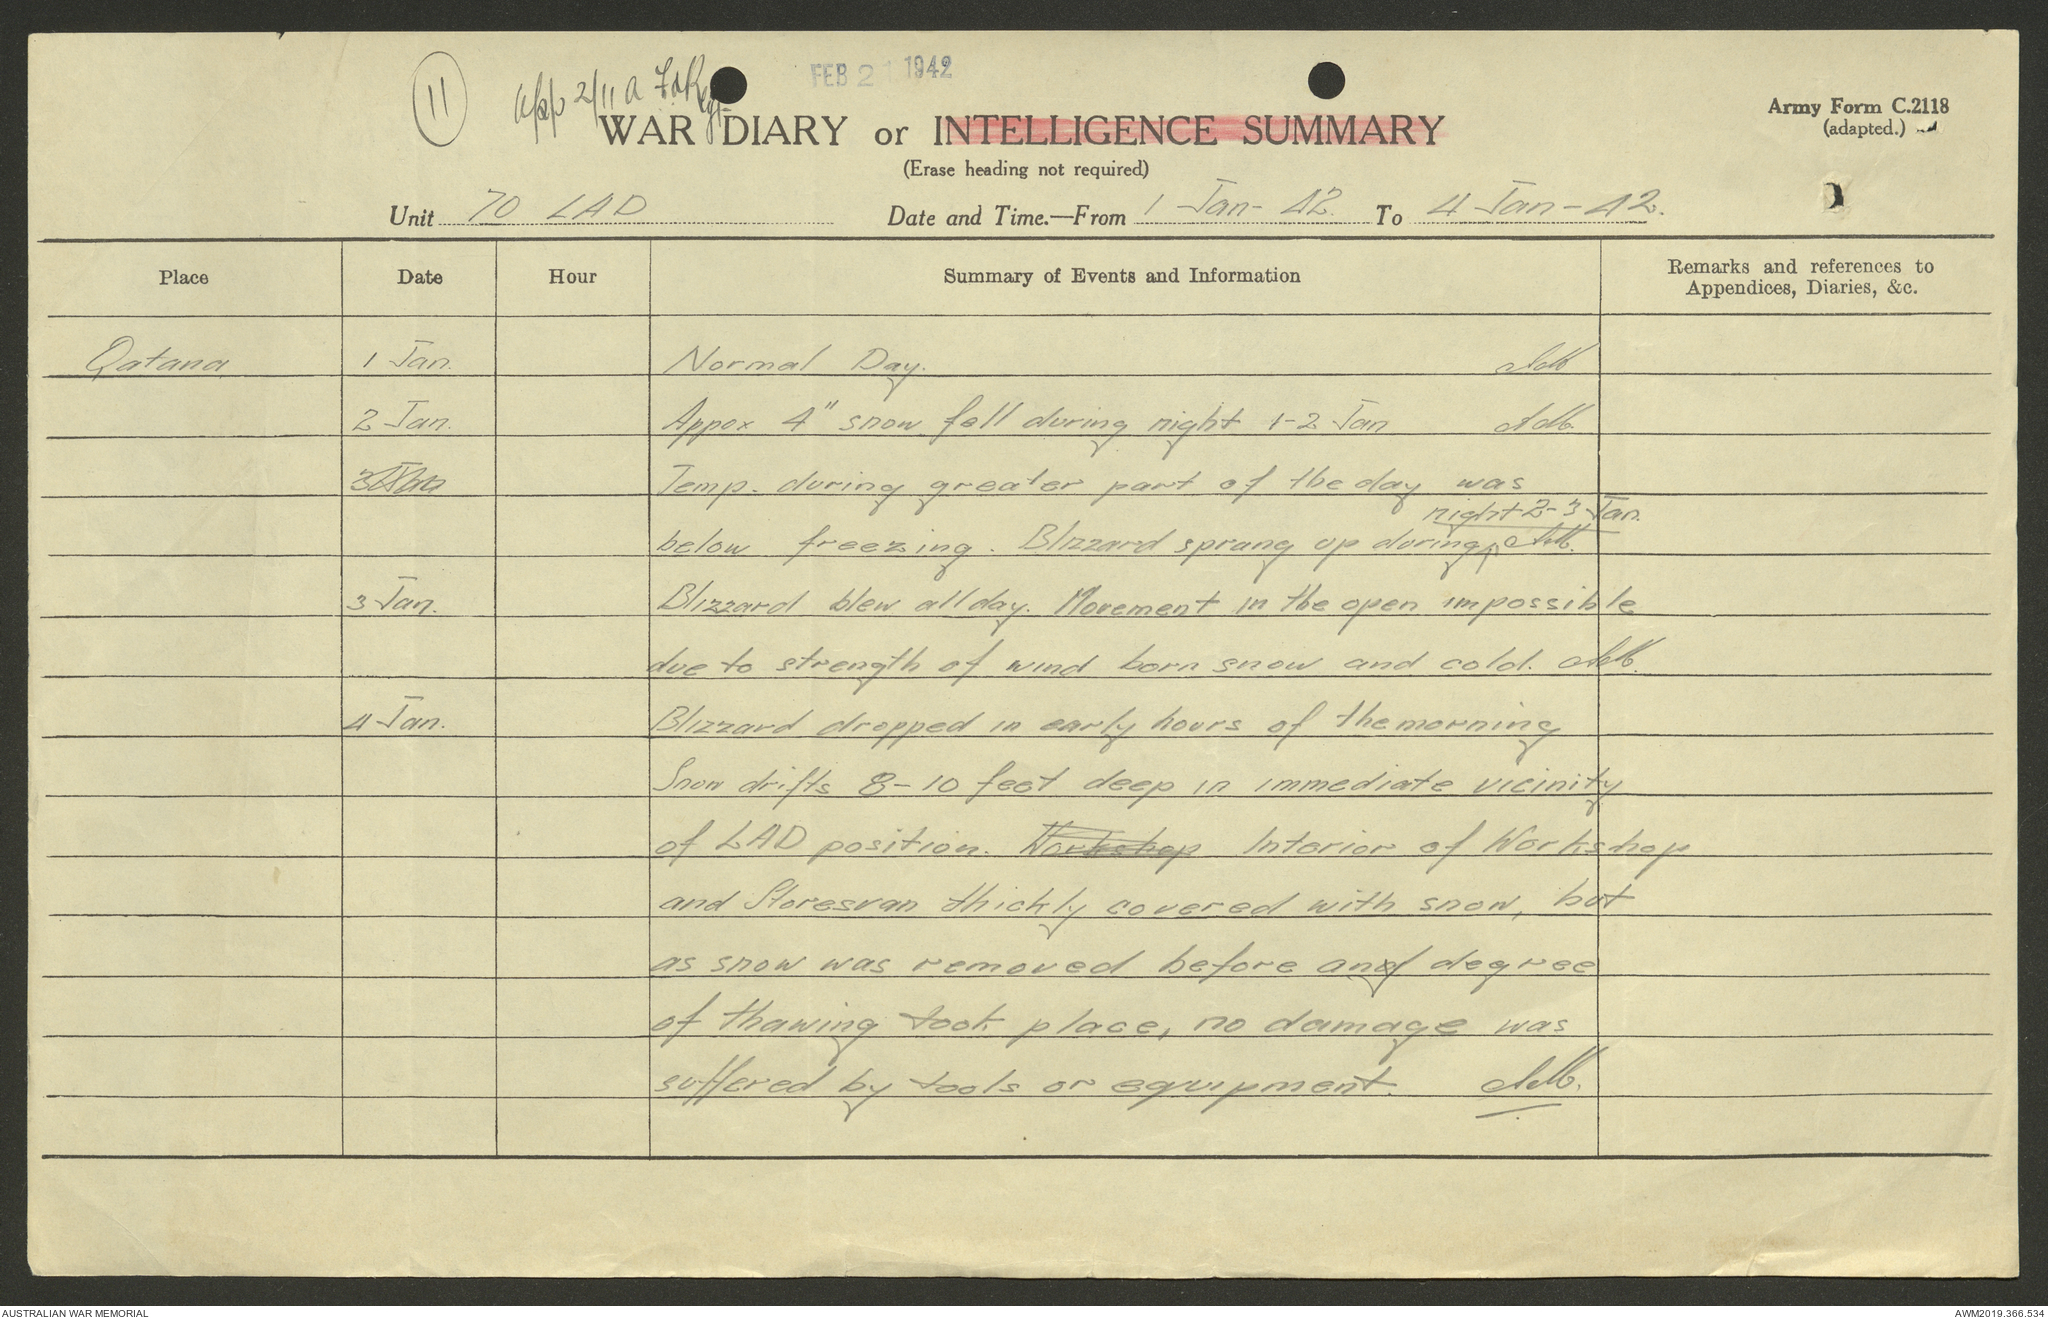 11
app 2/11 A Fd Regt
FEB 21 1942
WAR DIARY or INTELLIGENCE SUMMARY
Army Form C.2118
(adapted.)
(Erase heading not required)
Unit 70 LAD Date and Time.—From 1 Jan - 42. To 4 Jan - 42.
Place Date Hour Summary of Events and Information Remarks and references to
Appendices, Diaries, &c.
Qatana 1 Jan. Normal Day.
2 Jan. Appox 4" snow fell during night 1-2 Jan
3 Jan Temp. during greater part of the day was
night 2-3 Jan.
below freezing. Blizzard sprang up during
3 Jan. Blizzard blew all day. Movement in the open impossible
due to strength of wind born snow and cold.
4 Jan. Blizzard dropped in early hours of the morning
Snow drifts 8-10 feet deep in immediate vicinity
of LAD position. Workshop Interior of Workshop
and Storesvan thickly covered with snow, but
as snow was removed before any degree
of thawing took place, no damage was
suffered by tools or equipment.
AUSTRALIAN WAR MEMORIAL
AWM2019.366.534